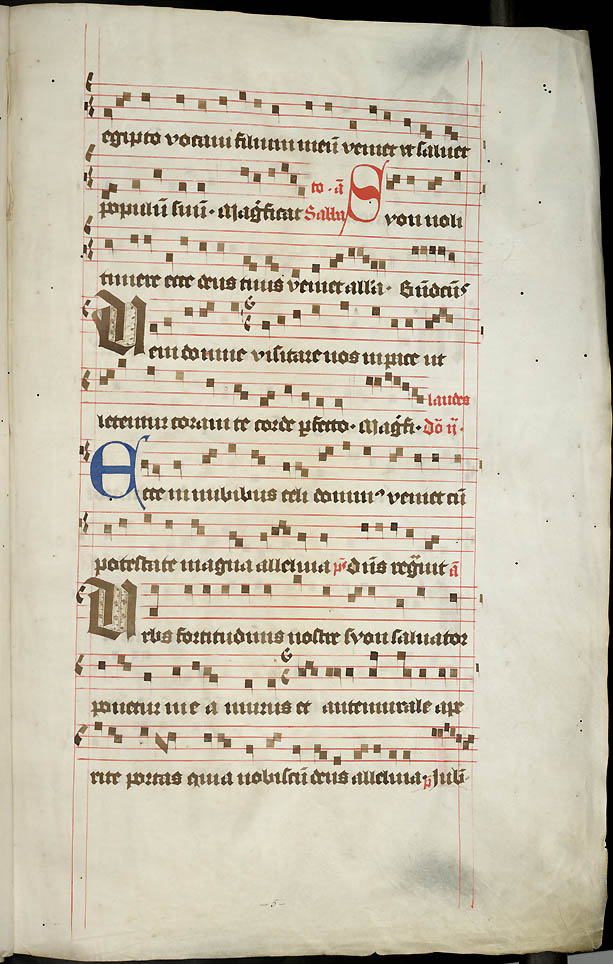 egipto vocaui filium meū veniet vt saluet
populū suū · Mag̃ficat Sabb̄to · ā Syon noli
timere ecce deus tuus veniet alla · Bn̄dctus
Veni domine visitare nos in pace ut
letemur coram te corde pfecto · Mag̃fi · Dō ij · laudes
Ecce in nubibus celi dominꝰ veniet cū
potestate magna alleluia ps Dn̄s regͣuit ā
Urbs fortitudinis nostre syon saluator
ponetur in e a murus et antemurale ape
rite portas quia nobiscū deus alleluia · p Jubi
5